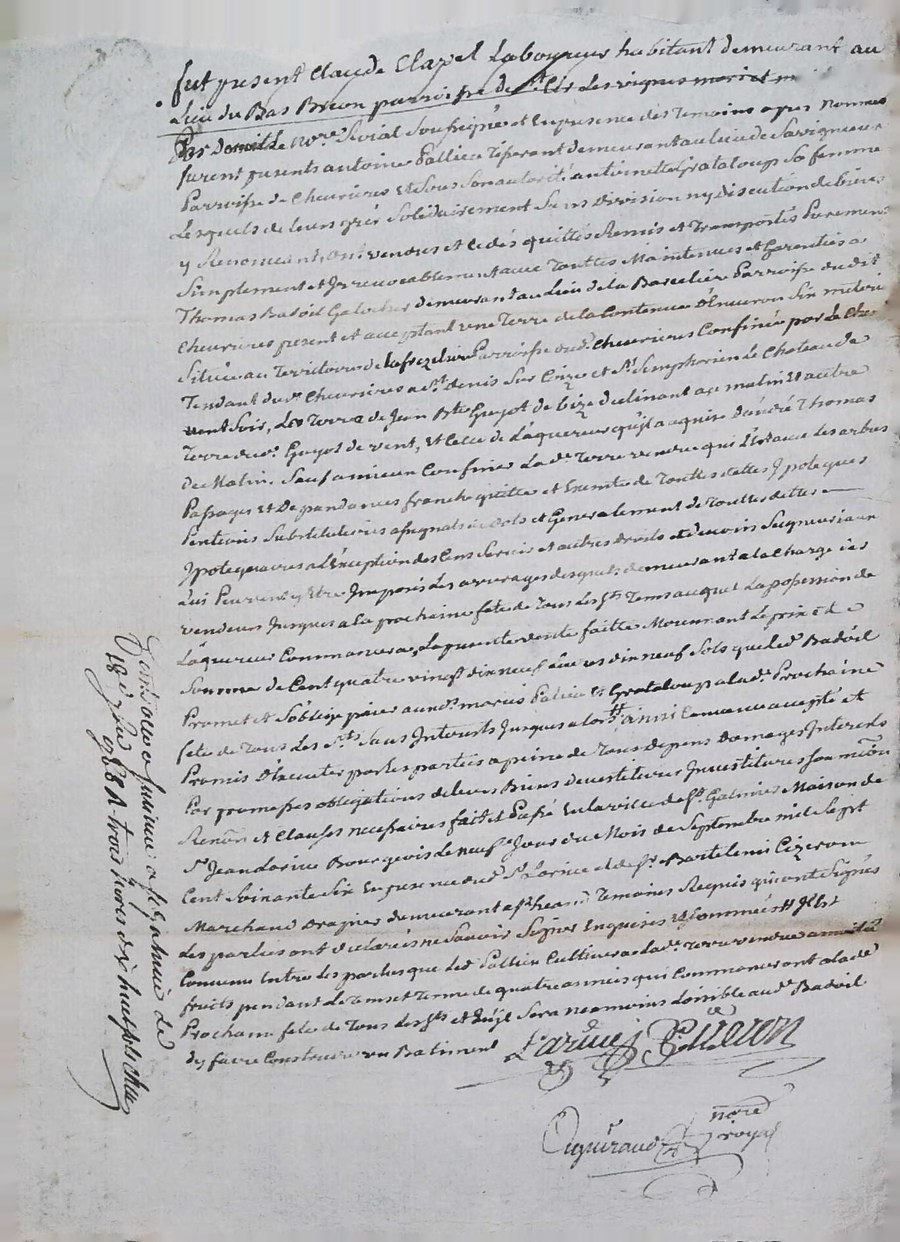 fut present Claude Clapel Laboureur habitant demeurant au
Lieu du Bas Breon parroisse de St. Cir Les vignes
Par Devant Le Nore. Roial Soussigné et En presence des Temoins apres nommés
furent presents antoine Pallier Tisserant demeurant au lieu de Savigneux
Parroisse de Chevrieres Et Sous Son autorité antoinette Grataloup Sa femme
Lesquels de leurs gré Solidairement Sans Division ny discution de biens
y Renonceant, Ont vendus et cedés quittés Remis et Transportés Purement
Simplement et Irrevocablement avec Touttes Maintenues et Garenties a
Thomas Badoil Galocher demeurant au Lieu de la Parroisse dudit
Chevrieres present et acceptant une Terre de la Contenue D'Environ Six
Située au Territoire de Parroisse dud. Chevrieres Confinée par Le Che
Tendant dud. Chevrieres a St. Denis Sur Coize et St. Simphorien Le Chateau de
vent Soir, Les Terre de Jean Bte Guyot de bize declinant au matin Et autre
Terre dud. Guyot de vent, et Celle de L'aquereur qu'il a aquise D'andré Thomas
de Matin. Sauf a mieux Confiner La de. Terre vendue qui L'est avec Les arbres
Passages Et Dependances franche quitte et Exemte de Touttes dettes Ypoteques
Pentions Substitutions assignats de dots et Generalement de Touttes dettes
Ypotequaires a L'Exception des Cens Servis et autres Droits et devoirs Seigneuriaux
qui Peuvent y Etre Imposés Les arrerages desquels demeurant a la Charge des
vendeurs Jusques a La prochaine fete de Tous Les Sts. Tems auquel La possession de
L'aquereur Commancera, La presente vente faitte Moiennant Le prix Et
Somme de Cent quatre vingt dix neuf Livres dix neuf Sols que Led. Badoil
Promet et S'oblige paier auxd. mariés Palier Et Grataloup a lad. Prochaine
fete de Tous Les Sts. Sans Interests Jusques a Lors ainsi Convenu accepté et
Promis D'Executer par les parties a peine de Tous depens Domages Interests
Par promesses obligations de leurs Biens devestitures Investitures Soumions
Renons et Clauses necessaires fait et Passé En la ville de St. Galmier Maison de
Sr. Jean Bourgeois Le neuf Jour du Mois de Septembre mil Sept
Cent Soixante Six En presence dud. Sr. et de Sr. Bartelemi Cizeron
Marchand Drapier demeurant Temoins Requis qui ont Signés
Les parties ont declarés ne Savoir Signer Enquises Et Sommées Il Est
Convenu Entre les parties que Led. Pallier Cultivera lad. Terre vendue a moitié
fruits pendant Le Tems et Terme de quatre années qui Commanceront a lade.
Prochaine fete de Tous Les Sts. et Sera neamoins Loisible aud. Badoil
d'y faire Construire un Batiment
Cizeron
nore.
royal
Controllé a St Galmier le
18 1766 trois livres dix huit sols